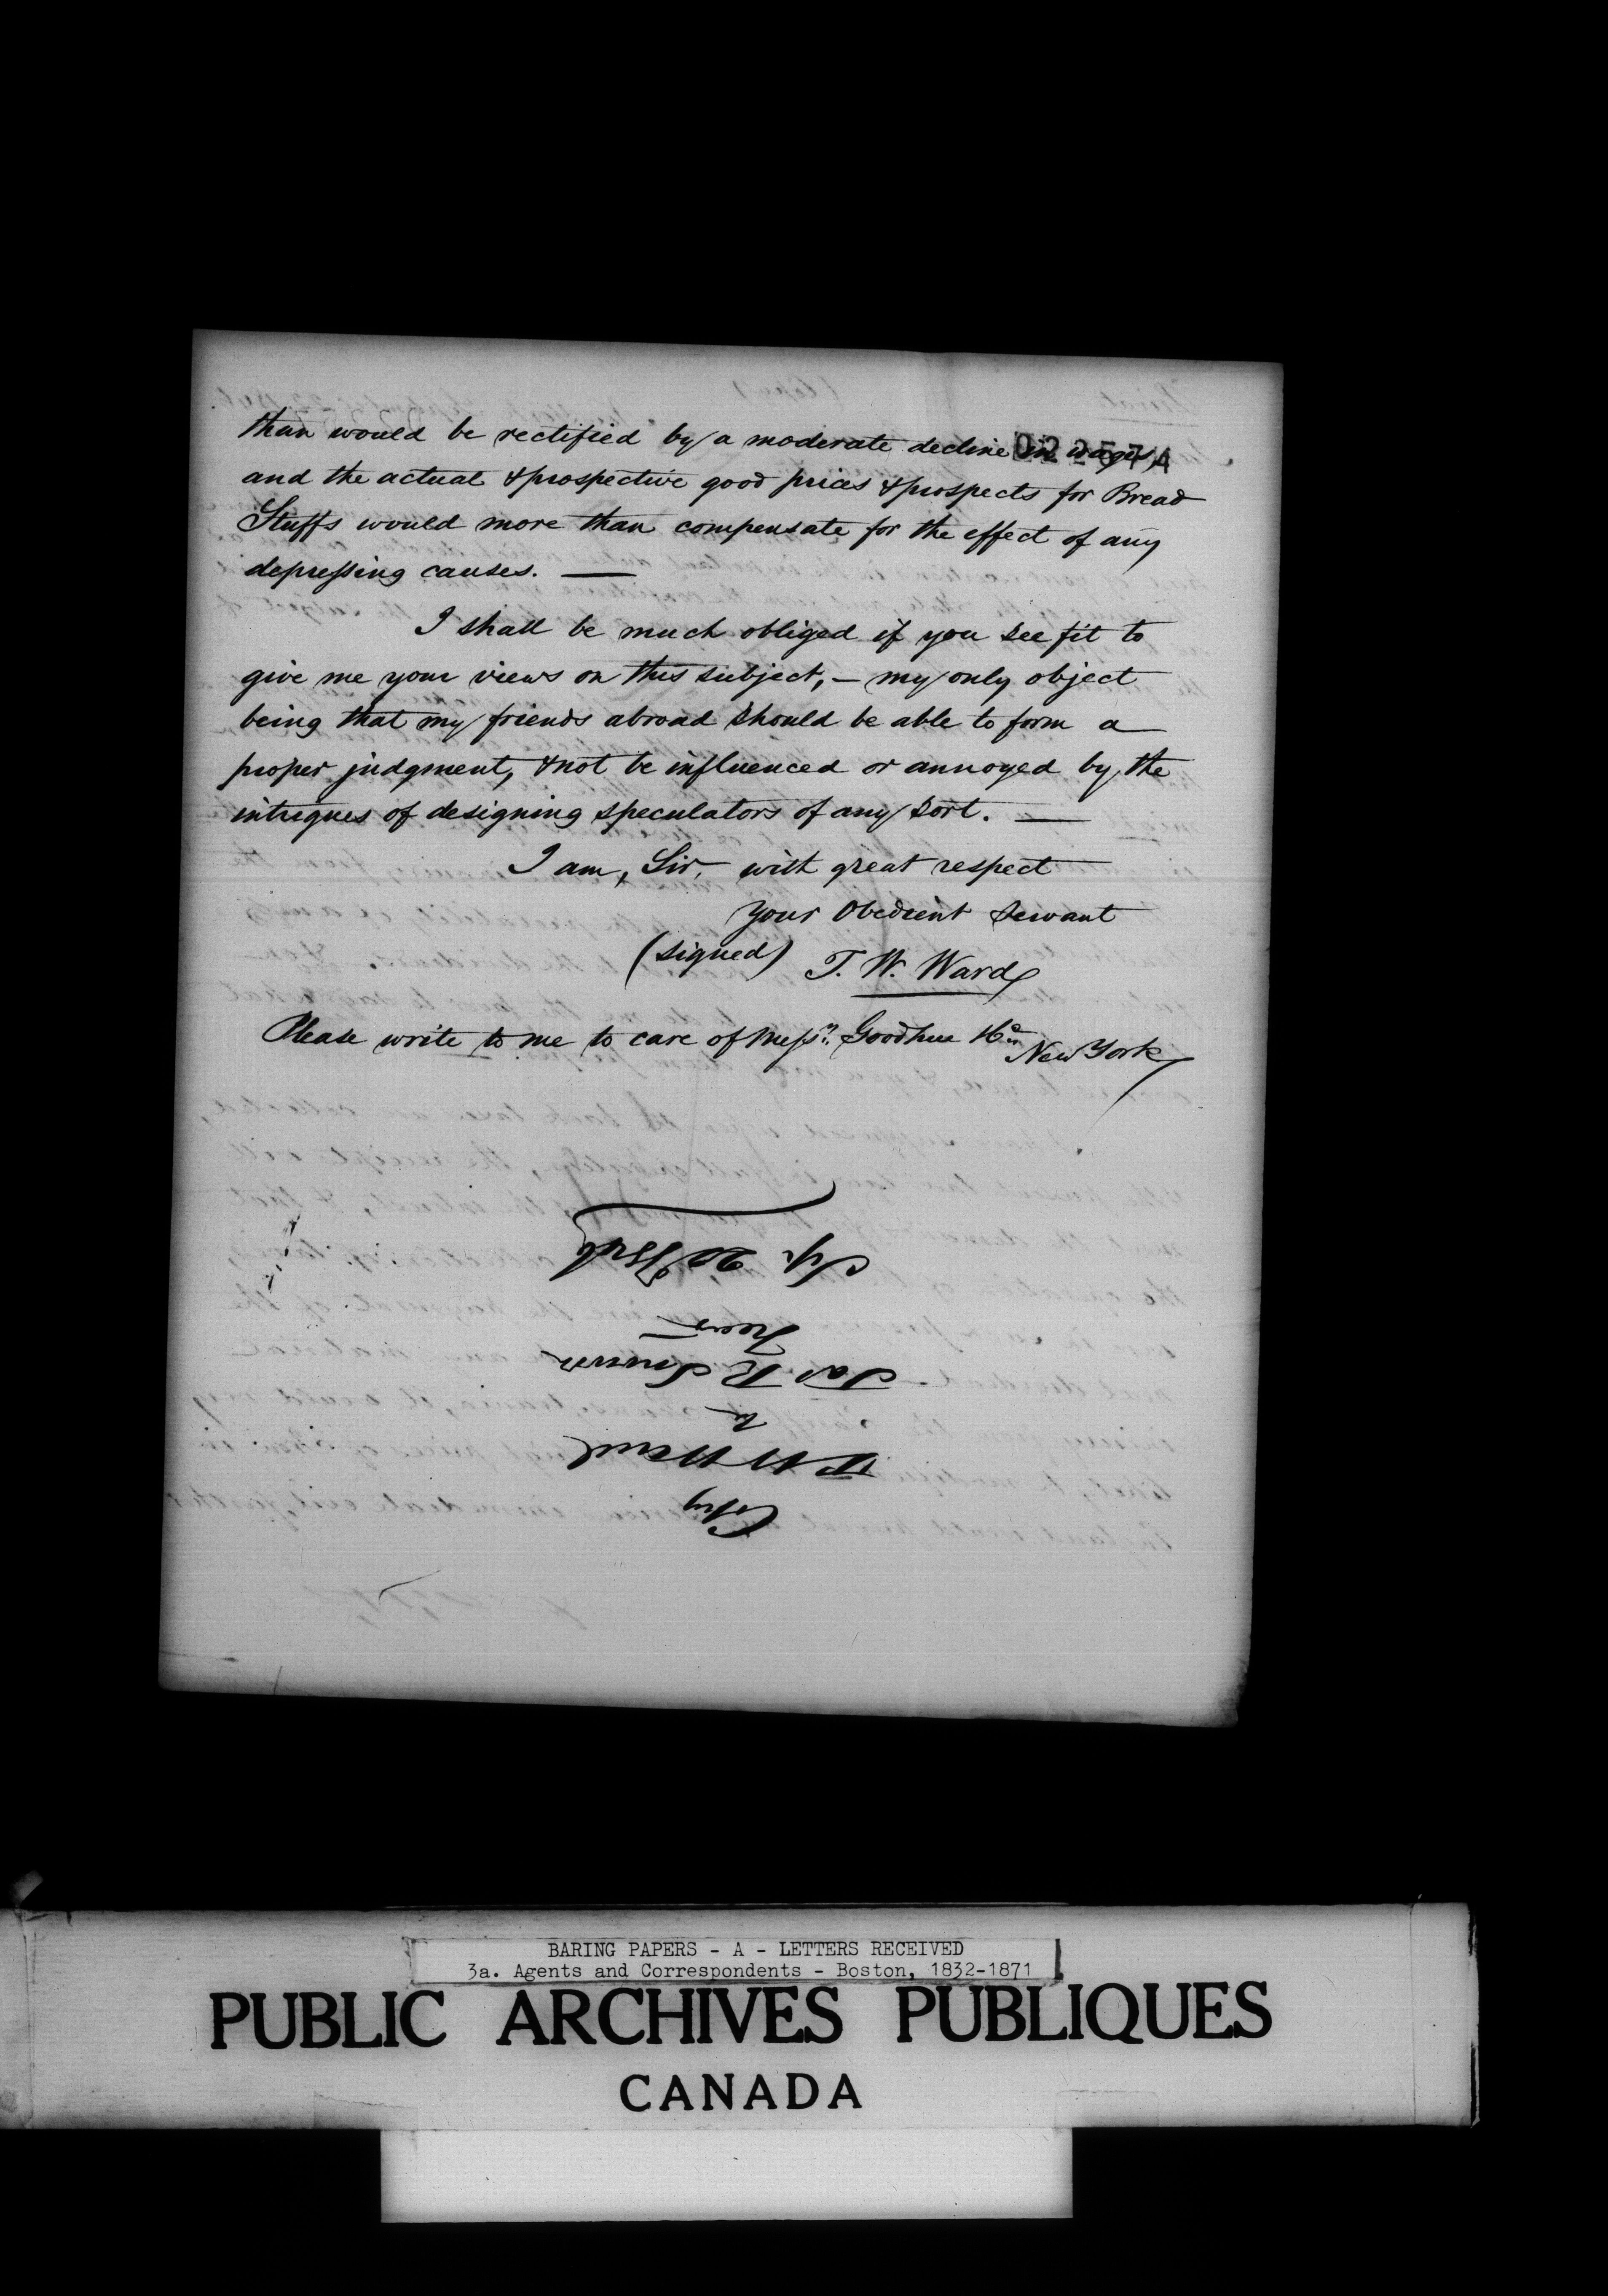 022574
than would be rectified by a moderate decline in wages,
and the actual & prospective good prices & prospects for Bread
Stuffs would more than compensate for the effect of any
depressing causes. —
I shall be much obliged if you see fit to
give me your views on this subject, — my only object
being that my friends abroad should be able to form a
proper judgment, & not be influenced or annoyed by the
intrigues of designing speculators of any sort. —
I am, Sir, with great respect
Your Obedient Servant
(signed) T. W. Ward
Please write to me to care of Messrs. Goodhue & Co. New York
Copy
T W Ward
to
Jas R Snowden
Treasr
Sep. 22 1846
BARING PAPERS - A - LETTERS RECEIVED
3a. Agents and Correspondents - Boston, 1832-1871
PUBLIC ARCHIVES PUBLIQUES
CANADA